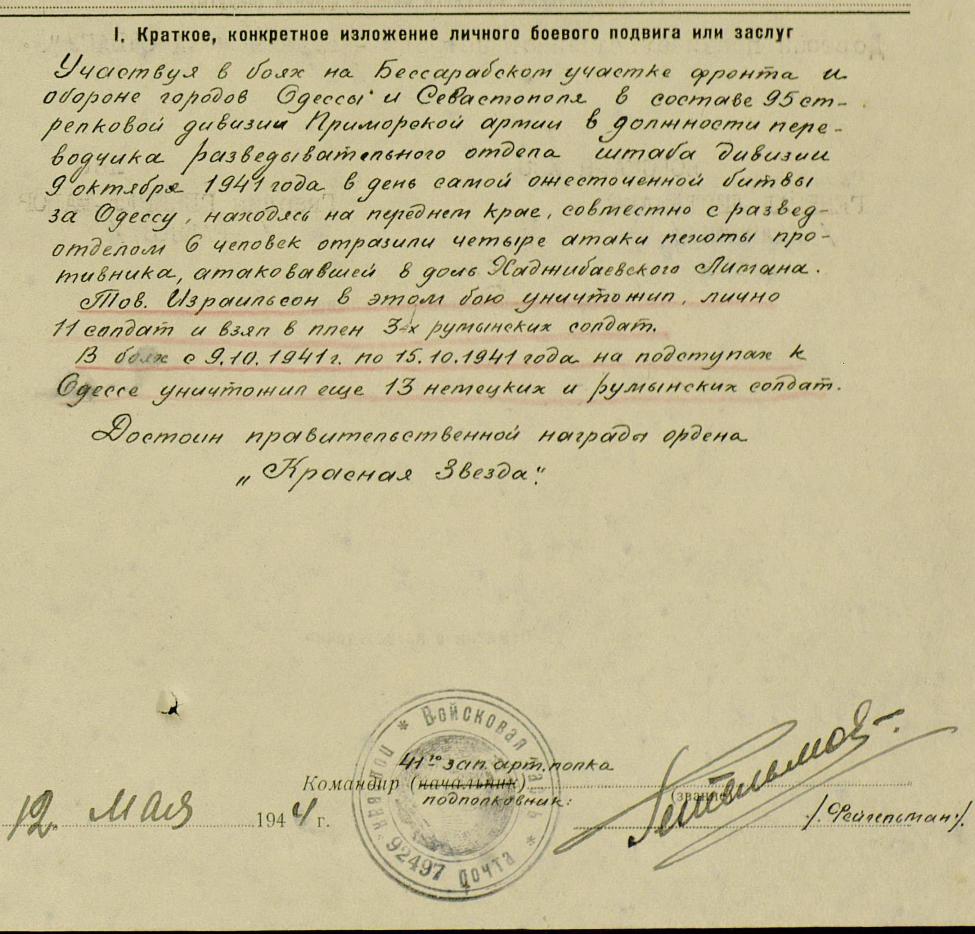 I. Краткое, конкретное изложение личного боевого подвига или заслуг
Участвуя в боях на Бессарабском участке фронта и
обороне городов Одессы и Севастополя в составе 95 ст-
релковой дивизии Приморской армии в должности пере-
водчика разведывательного отдела штаба дивизии
9 октября 1941 года в день самой ожесточенной битвы
за Одессу, находясь на переднем крае, совместно с развед-
отделом 6 человек отразили четыре атаки пехоты про-
тивника, атаковавшей в доль Хаджибаевского Лимана.
Тов. Израильсон в этом бою уничтожил, лично
11 солдат и взял в плен 3-х румынских солдат.
В боях с 9.10.1941г. по 15.10.1941 года на подступах к
Одессе уничтожил еще 13 немецких и румынских солдат.
Достоин правительственной награды ордена
„Красная Звезда".
* Войсковая часть * полевая почта 92497
41го зап. арт. полка
Командир (начальник)
подполковник:
(звание)
12. мая 1944 г.
/.Фейгельман./